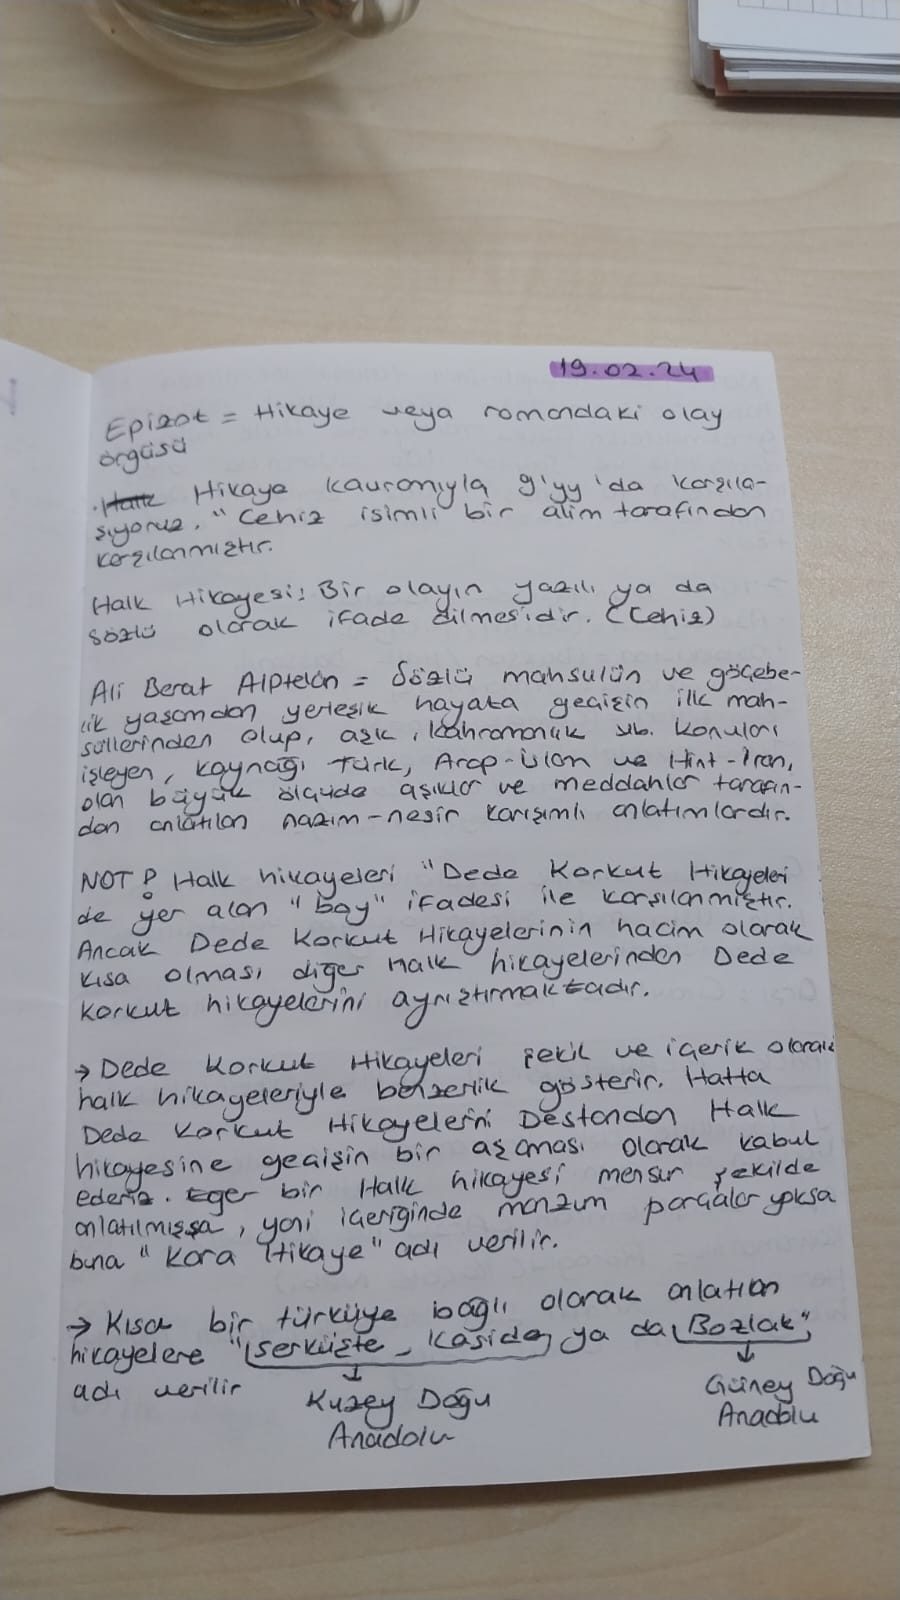 19.02.24
Epizot = Hikaye veya romandaki olay
örgüsü
. Halk Hikaye kavramıyla 9'yy'da karşıla-
şıyoruz. "Cehiz isimli bir alim tarafından
karşılanmıştır.
Halk Hikayesi: Bir olayın yazılı ya da
sözlü olarak ifade dilmesidir. (Cehiz)
Ali Berat Alptekin = Sözlü mahsulün ve göçebe-
lik yaşamdan yerleşik hayata geçişin ilk mah-
sullerinden olup, aşk, kahramanlık vb. konuları
işleyen, kaynağı Türk, Arap-islam ve Hint-İran,
olan büyük ölçüde aşıklar ve meddahlar tarafın-
dan anlatılan nazım-nesir karışımlı anlatımlardır.
NOT! Halk hikayeleri "Dede Korkut Hikayeleri
de yer alan "boy" ifadesi ile karşılanmıştır.
Ancak Dede Korkut Hikayelerinin hacim olarak
kısa olması diğer Halk hikayelerinden Dede
Korkut hikayelerini ayrıştırmaktadır.
→ Dede Korkut Hikayeleri şekil ve içerik olarak
halk hikayeleriyle benzerlik gösterir. Hatta
Dede Korkut Hikayelerini Destandan Halk
hikayesine geçişin bir aşaması olarak kabul
ederiz. Eğer bir Halk hikayesi mensur şekilde
anlatılmışsa, yani içeriğinde manzum parçalar yoksa
buna "Kara Hikaye" adı verilir.
→ Kısa bir türküye bağlı olarak anlatılan
hikayelere "serküşte, kaside ya da Bozlak"
adı verilir
Kuzey Doğu
Anadolu
Güney Doğu
Anadolu